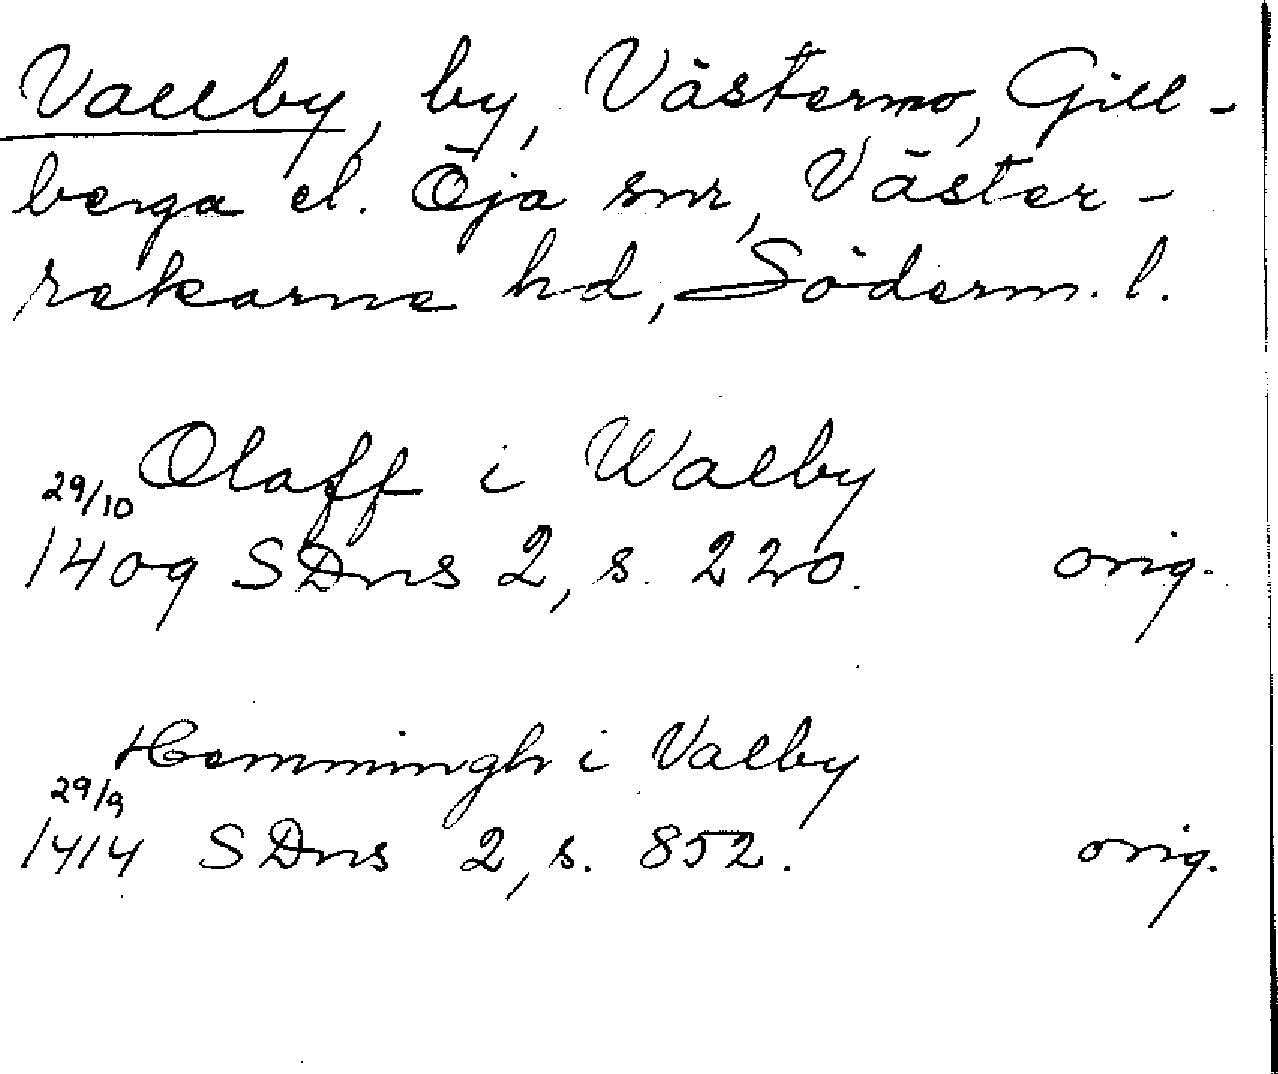 Vallby, by, Västermo, Gill-
berga el. Öja snr, Väster-
rekarne hd, Söderm. l.
Olaff i Walby
29/10
1409 SDns 2, s. 220. orig.
Hemmingh i Valby
29/9
1414 SDns 2, s. 852. orig.